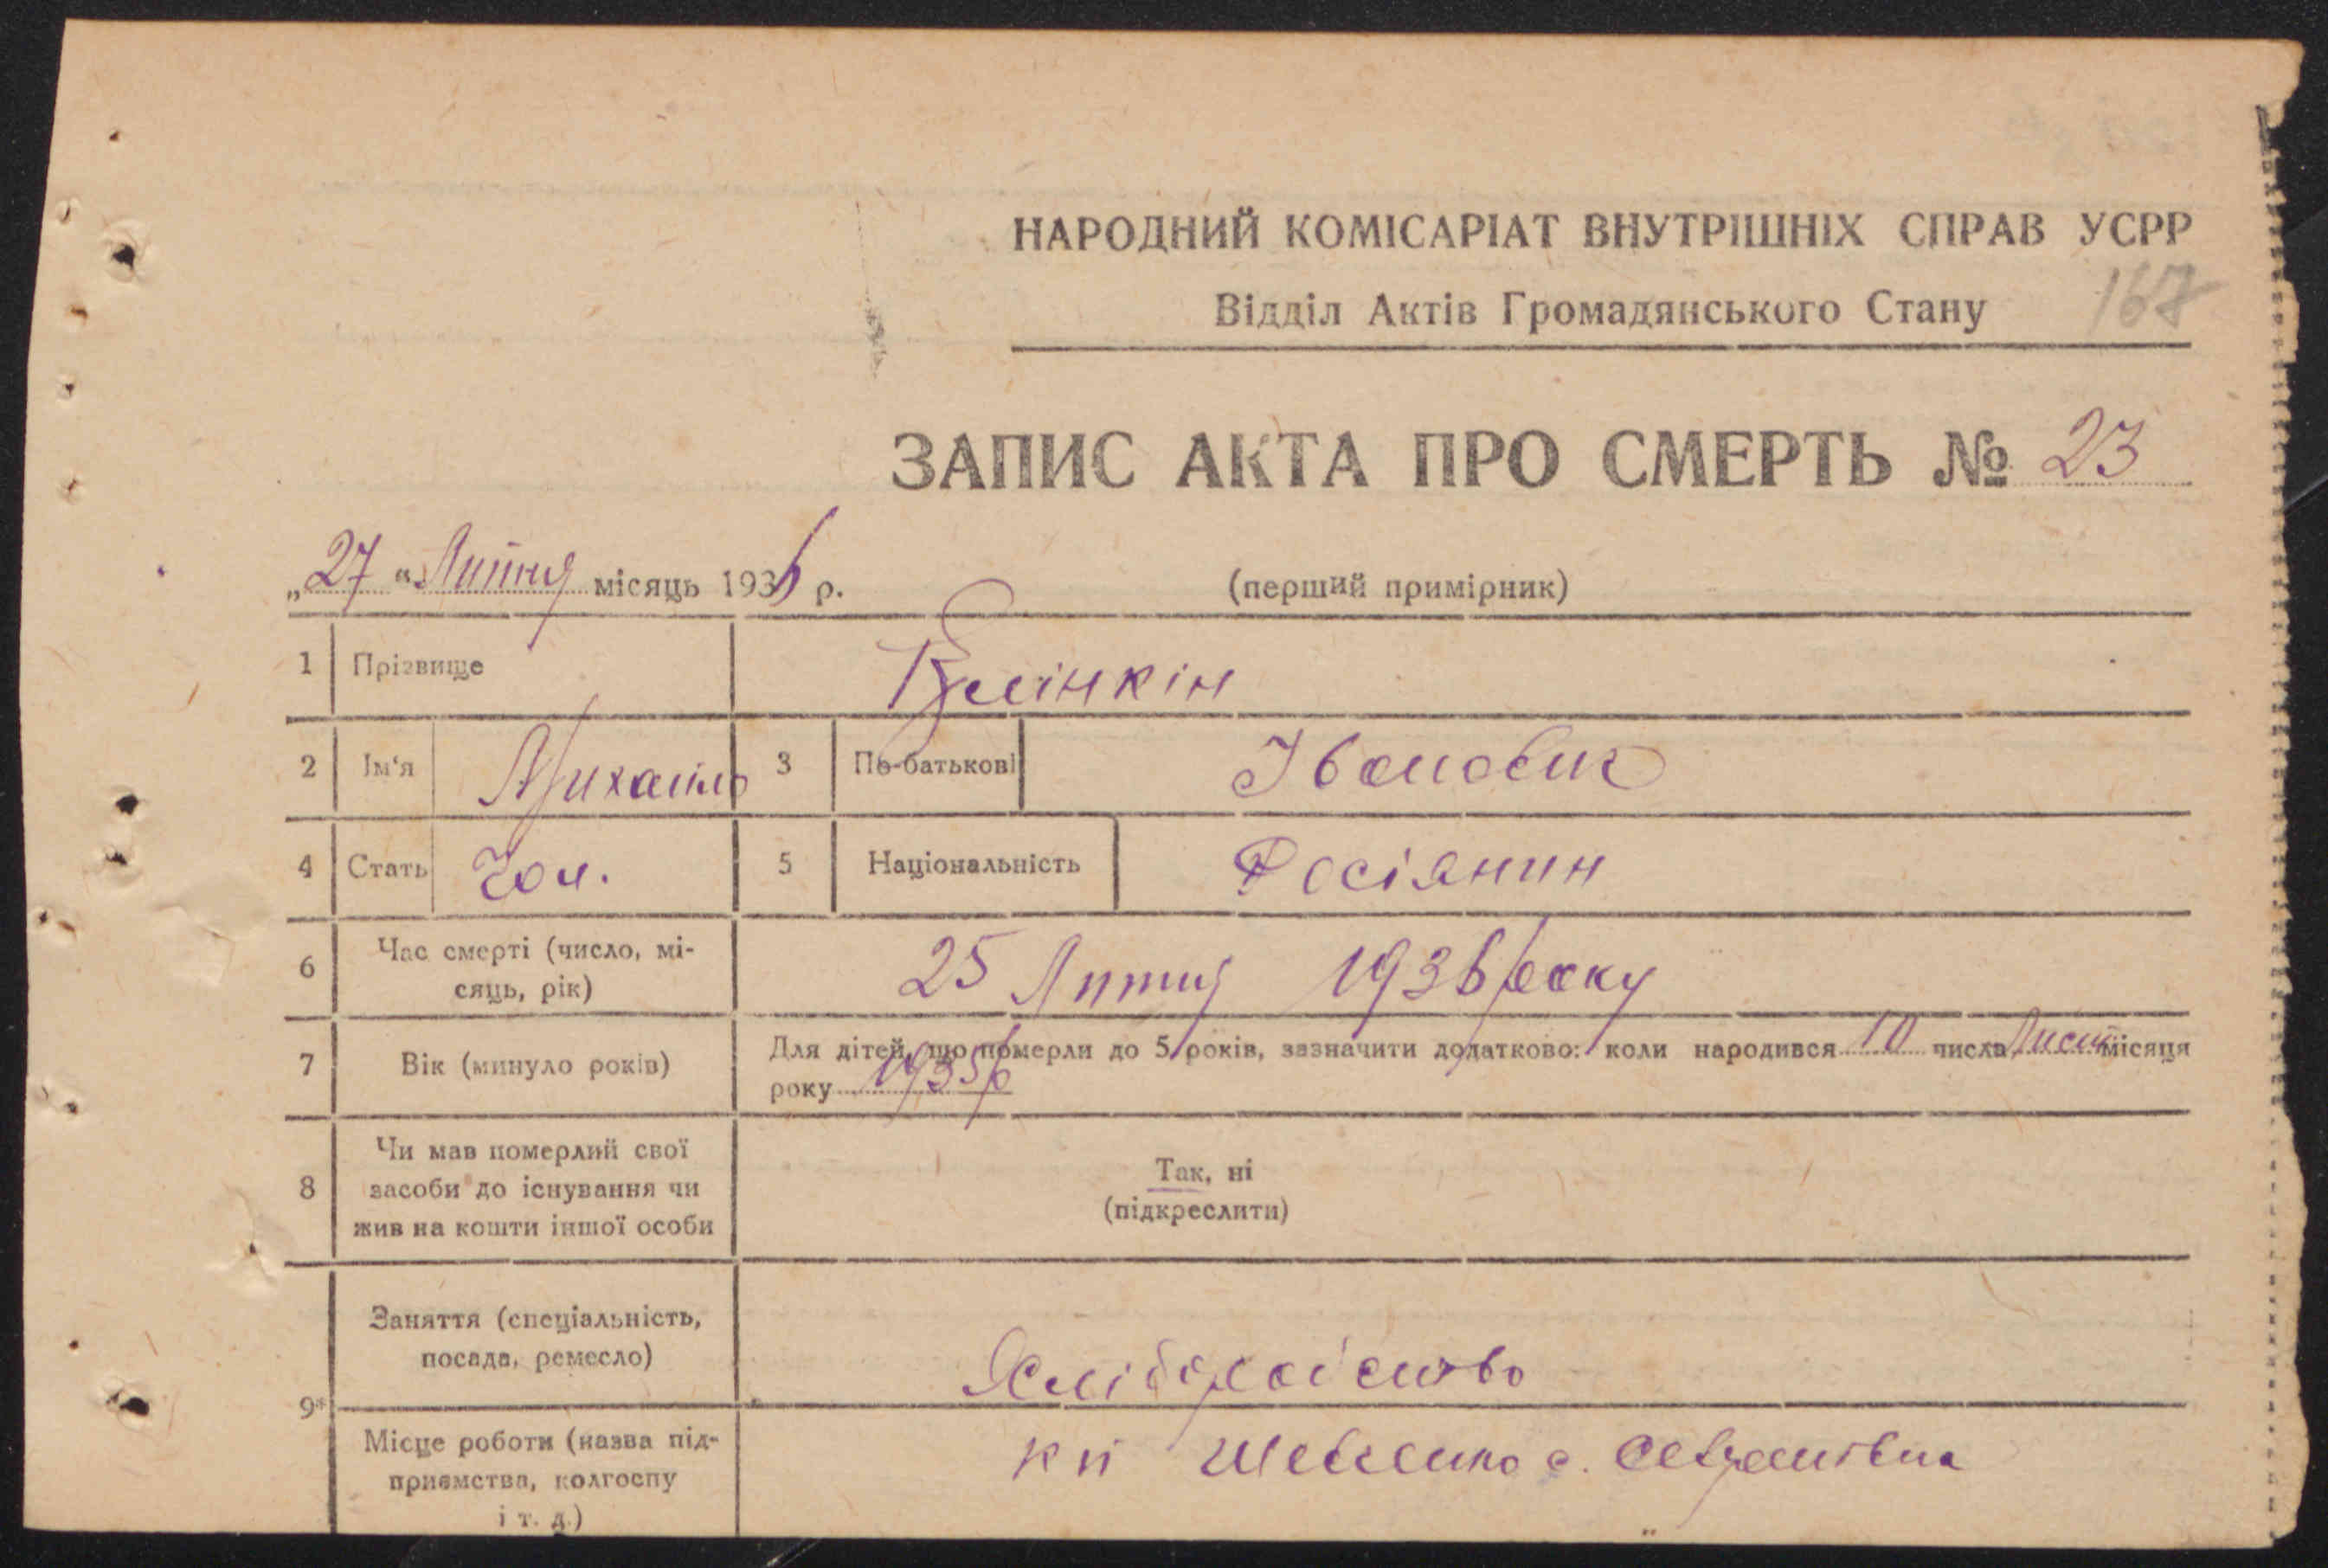 НАРОДНИЙ КОМІСАРІАТ ВНУТРІШНІХ СПРАВ УСРР
Відділ Актів Громадянського Стану 167
ЗАПИС АКТА ПРО СМЕРТЬ № 23
„27“ Липня місяць 1936 р. (перший примірник)
1 Прізвище
2 Ім'я Михайло 3 По-батькові Іванович
4 Стать Чол. 5 Національність Росіянин
6 Час смерті (число, мі-
сяць, рік) 25 Липня 1936 року
7 Вік (минуло років) Для дітей, що померли до 5 років, зазначити додатково: коли народився 10 числа Лист місяця
року 1935 р
8 Чи мав померлий свої
засоби до існування чи
жив на кошти іншої особи
Так, ні
(підкреслити)
9* Заняття (спеціальність,
посада, ремесло) Хліборобство
Місце роботи (назва під-
приємства, колгоспу
і т. д.)
Шевченко с.